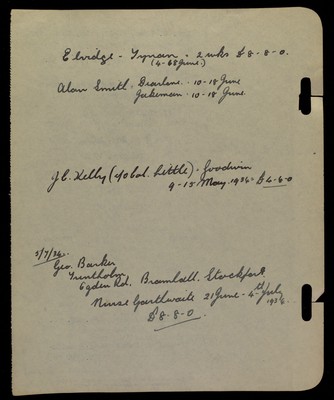 Elvidge - Tynan - 2 wks £8-8-0.
(4-68 June.)
Alan Smith. Dearlane. - 10-18 June
Jakeman. - 10-18 June.
J.C. Kelly (%Col. Little) - Goodwin
9-15 May. 1936 - £4-4-0
5/7/36.
Geo. Barker
Ogden Rd. Bramhall. Stockport.
Nurse Garthwaite 21 June - 4th July
1936.
£8-8-0.